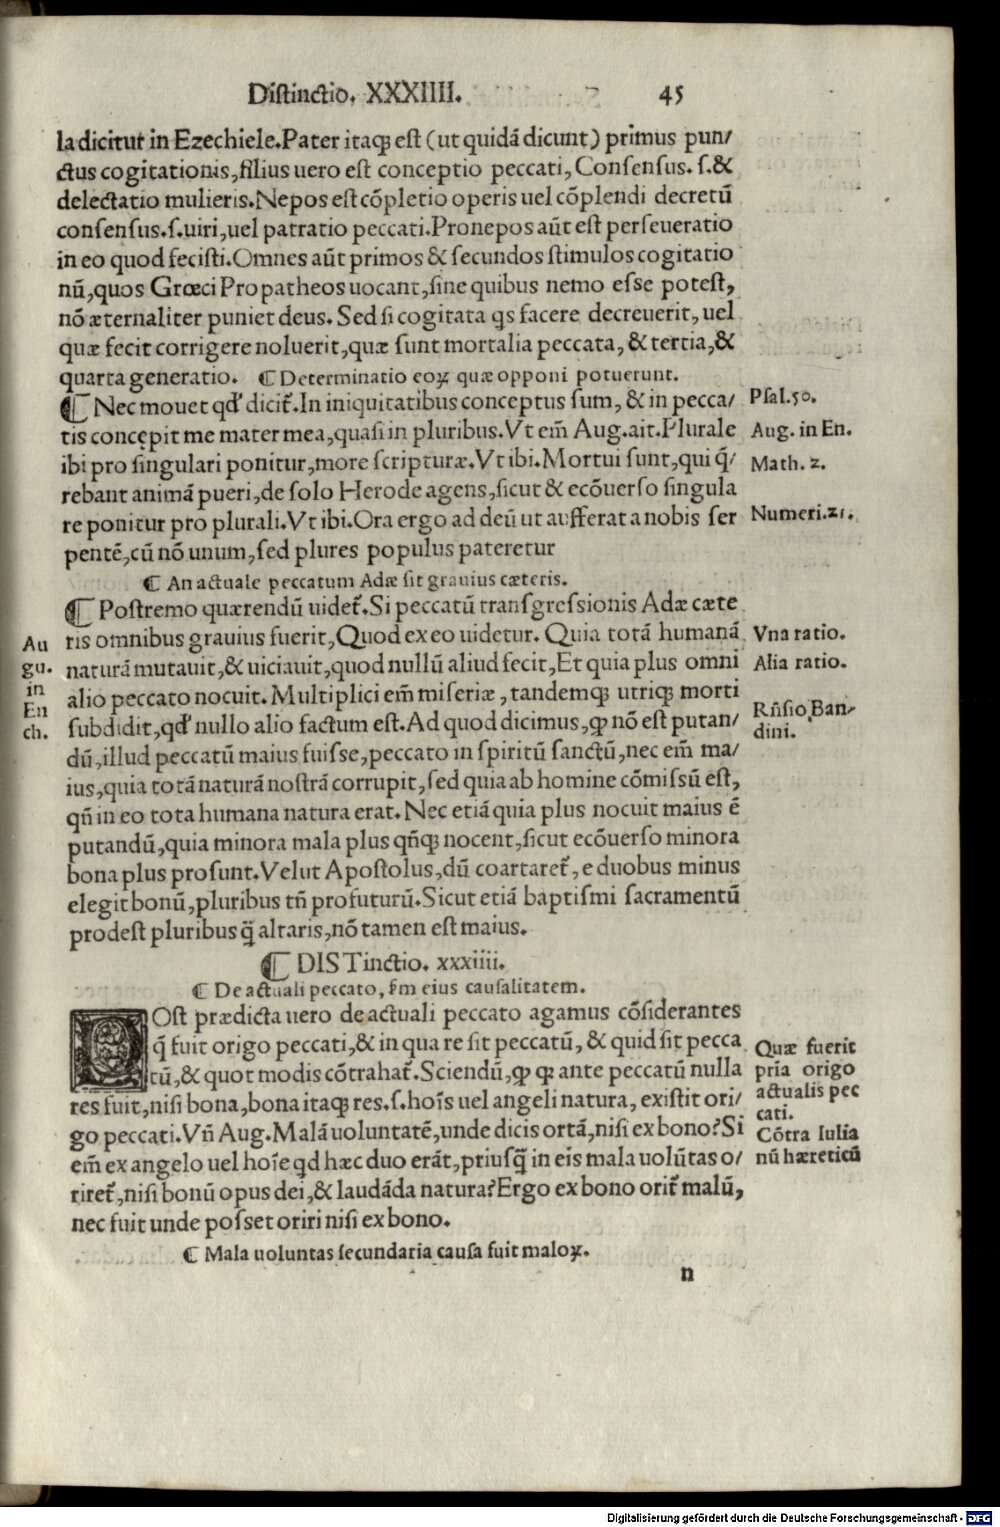 Distinctio. XXXIIII. 45
la dicitur in Ezechiele. Pater itaqꝫ est (ut quidā dicunt) primus pun/
ctus cogitationis, filius uero est conceptio peccati, Consensus. s. &
delectatio mulieris. Nepos est cōpletio operis uel cōplendi decretū
consensus. s. uiri, uel patratio peccati. Pronepos aūt est perseueratio
in eo quod fecisti. Omnes aūt primos & secundos stimulos cogitatio
nū, quos Grœci Propatheos uocant, sine quibus nemo esse potest,
nō æternaliter puniet deus. Sed si cogitata qs facere decreuerit, uel
quæ fecit corrigere noluerit, quæ sunt mortalia peccata, & tertia, &
quarta generatio. ¶ Determinatio eoꝝ quæ opponi potuerunt.
¶ Nec mouet qđ dicit̃. In iniquitatibus conceptus sum, & in pecca/
tis concępit me mater mea, quasi in pluribus. Vt em̃ Aug. ait. Plurale
ibi pro singulari ponitur, more scripturæ. Vt ibi. Mortui sunt, qui q̃/
rebant animā pueri, de solo Herode agens, sicut & ecōuerso singula
re ponitur pro plurali. Vt ibi. Ora ergo ad deū ut aufferat a nobis ser
pentē, cū nō unum, sed plures populus pateretur
¶ An actuale peccatum Adæ sit grauius cæteris.
¶ Postremo quærendū uidet̃. Si peccatū transgressionis Adæ cæte
ris omnibus grauius fuerit, Quod ex eo uidetur. Quia totā humanā
naturā mutauit, & uiciauit, quod nullū aliud fecit, Et quia plus omni
alio peccato nocuit. Multiplici em̃ miseriæ, tandemqꝫ utriqꝫ morti
subdidit, qđ nullo alio factum est. Ad quod dicimus, ꝙ nō est putan/
dū, illud peccatū maius fuisse, peccato in spiritū sanctū, nec em̃ ma/
ius, quia totā naturā nostrā corrupit, sed quia ab homine cōmissū est,
qñ in eo tota humana natura erat. Nec etiā quia plus nocuit maius ē
putandū, quia minora mala plus qñqꝫ nocent, sicut ecōuerso minora
bona plus prosunt. Velut Apostolus, dū coartaret̃, e duobus minus
elegit bonū, pluribus tñ profuturū. Sicut etiā baptismi sacramentū
prodest pluribus q̃ altaris, nō tamen est maius.
Psal. 50.
Aug. in En.
Math. 2.
Numeri. 21.
Au
gu.
in
En
ch.
Vna ratio.
Alia ratio.
Rñsio Ban/
dini.
¶ DISTinctio. xxxiiii.
¶ De actuali peccato, s̃m eius causalitatem.
POst prædicta uero de actuali peccato agamus cōsiderantes
q̃ fuit origo peccati, & in qua re sit peccatū, & quid sit pecca
tū, & quot modis cōtrahat̃. Sciendū, ꝙ ꝙ ante peccatū nulla
res fuit, nisi bona, bona itaqꝫ res. s. hoīs uel angeli natura, existit ori/
go peccati. Vñ Aug. Malā uoluntatē, unde dicis ortā, nisi ex bono? Si
em̃ ex angelo uel hoīe qd hæc duo erāt, priusq̃ in eis mala uolūtas o/
riret̃, nisi bonū opus dei, & laudāda natura? Ergo ex bono orit̃ malū,
nec fuit unde posset oriri nisi ex bono.
¶ Mala uoluntas secundaria causa fuit maloꝝ.
Quæ fuerit
pria origo
actualis pec
cati.
Cōtra Iulia
nū hæreticū
n
Digitalisierung gefördert durch die Deutsche Forschungsgemeinschaft - DFG